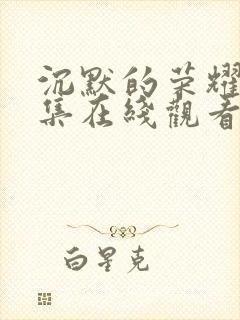 沉默的荣耀
集在綫觀看
白星克